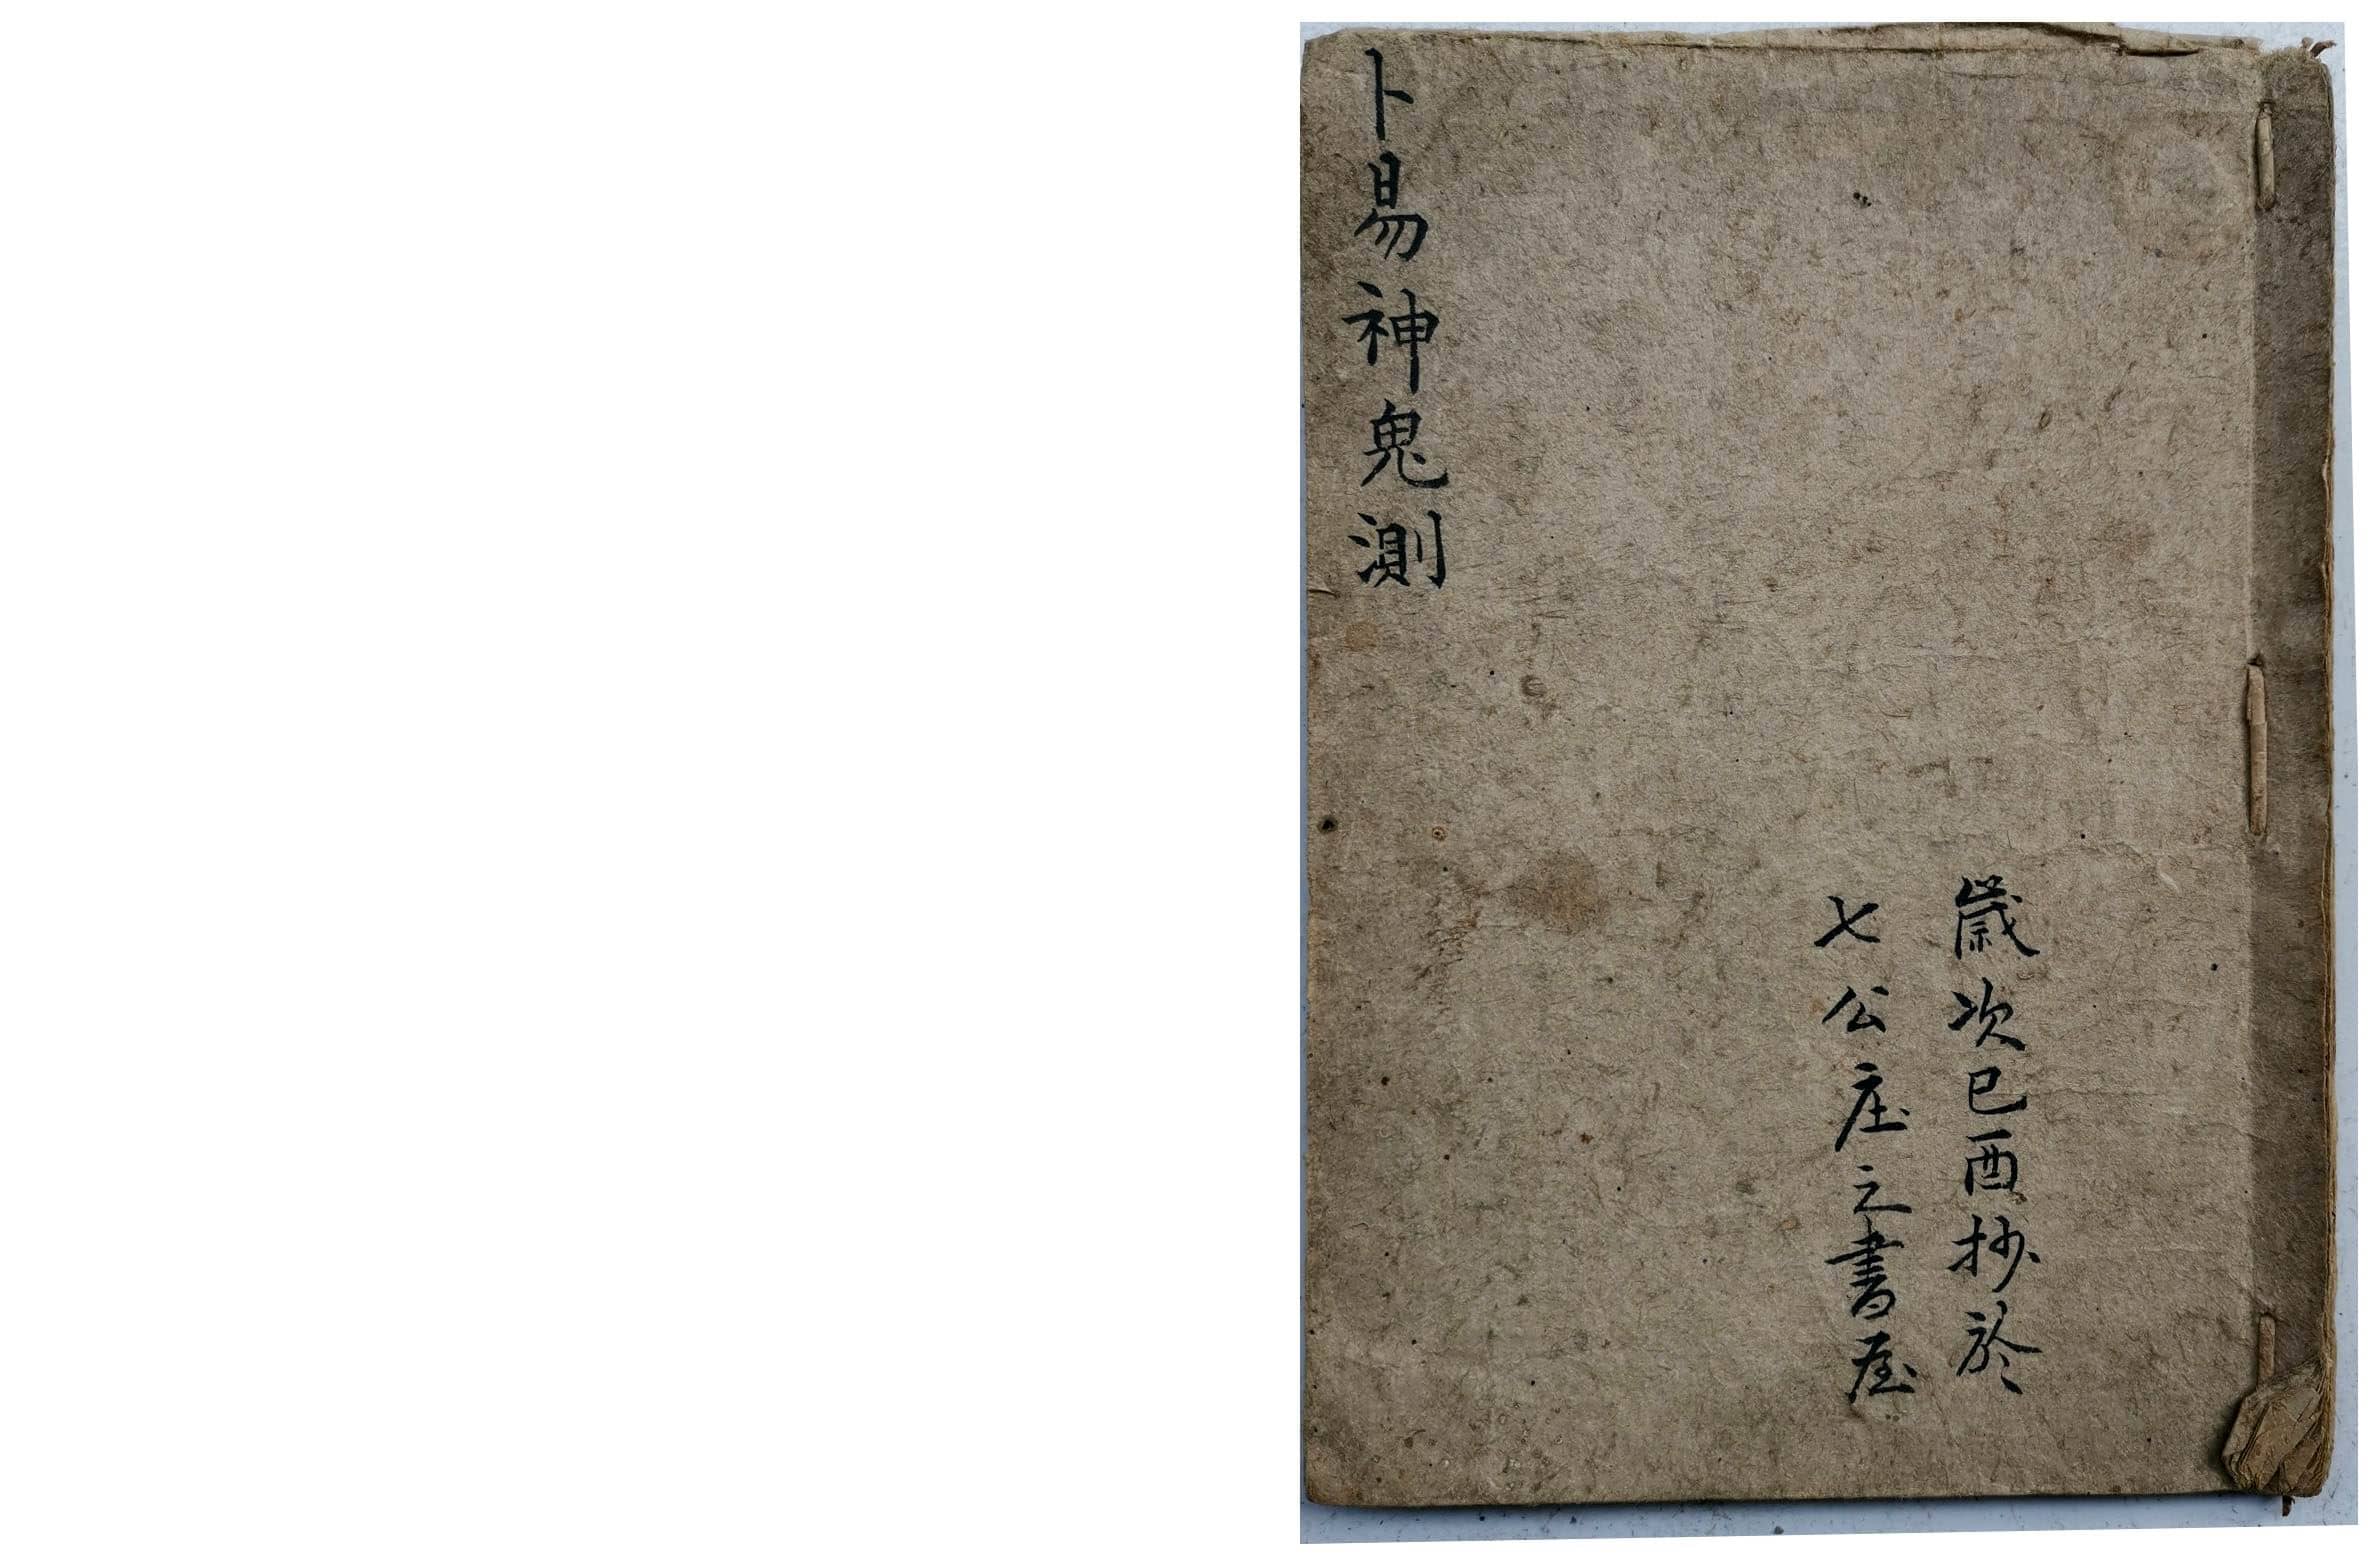 歲次已酉抄於
七公庄之書屋
卜易神鬼測